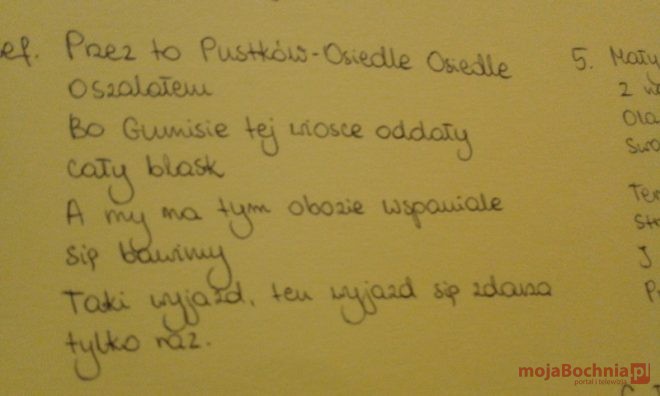 ef. Przez to Pustków-Osiedle Osiedle
oszalałem
Bo Gumisie tej wiosce oddały
cały blask
A my na tym obozie wspaniale
się bawimy
Taki wyjazd, ten wyjazd się zdarza
tylko raz.
5. Mały
z
Ola
Swo
Ter
Str
I
P
mojaBochnia.pl
portal i telewizja